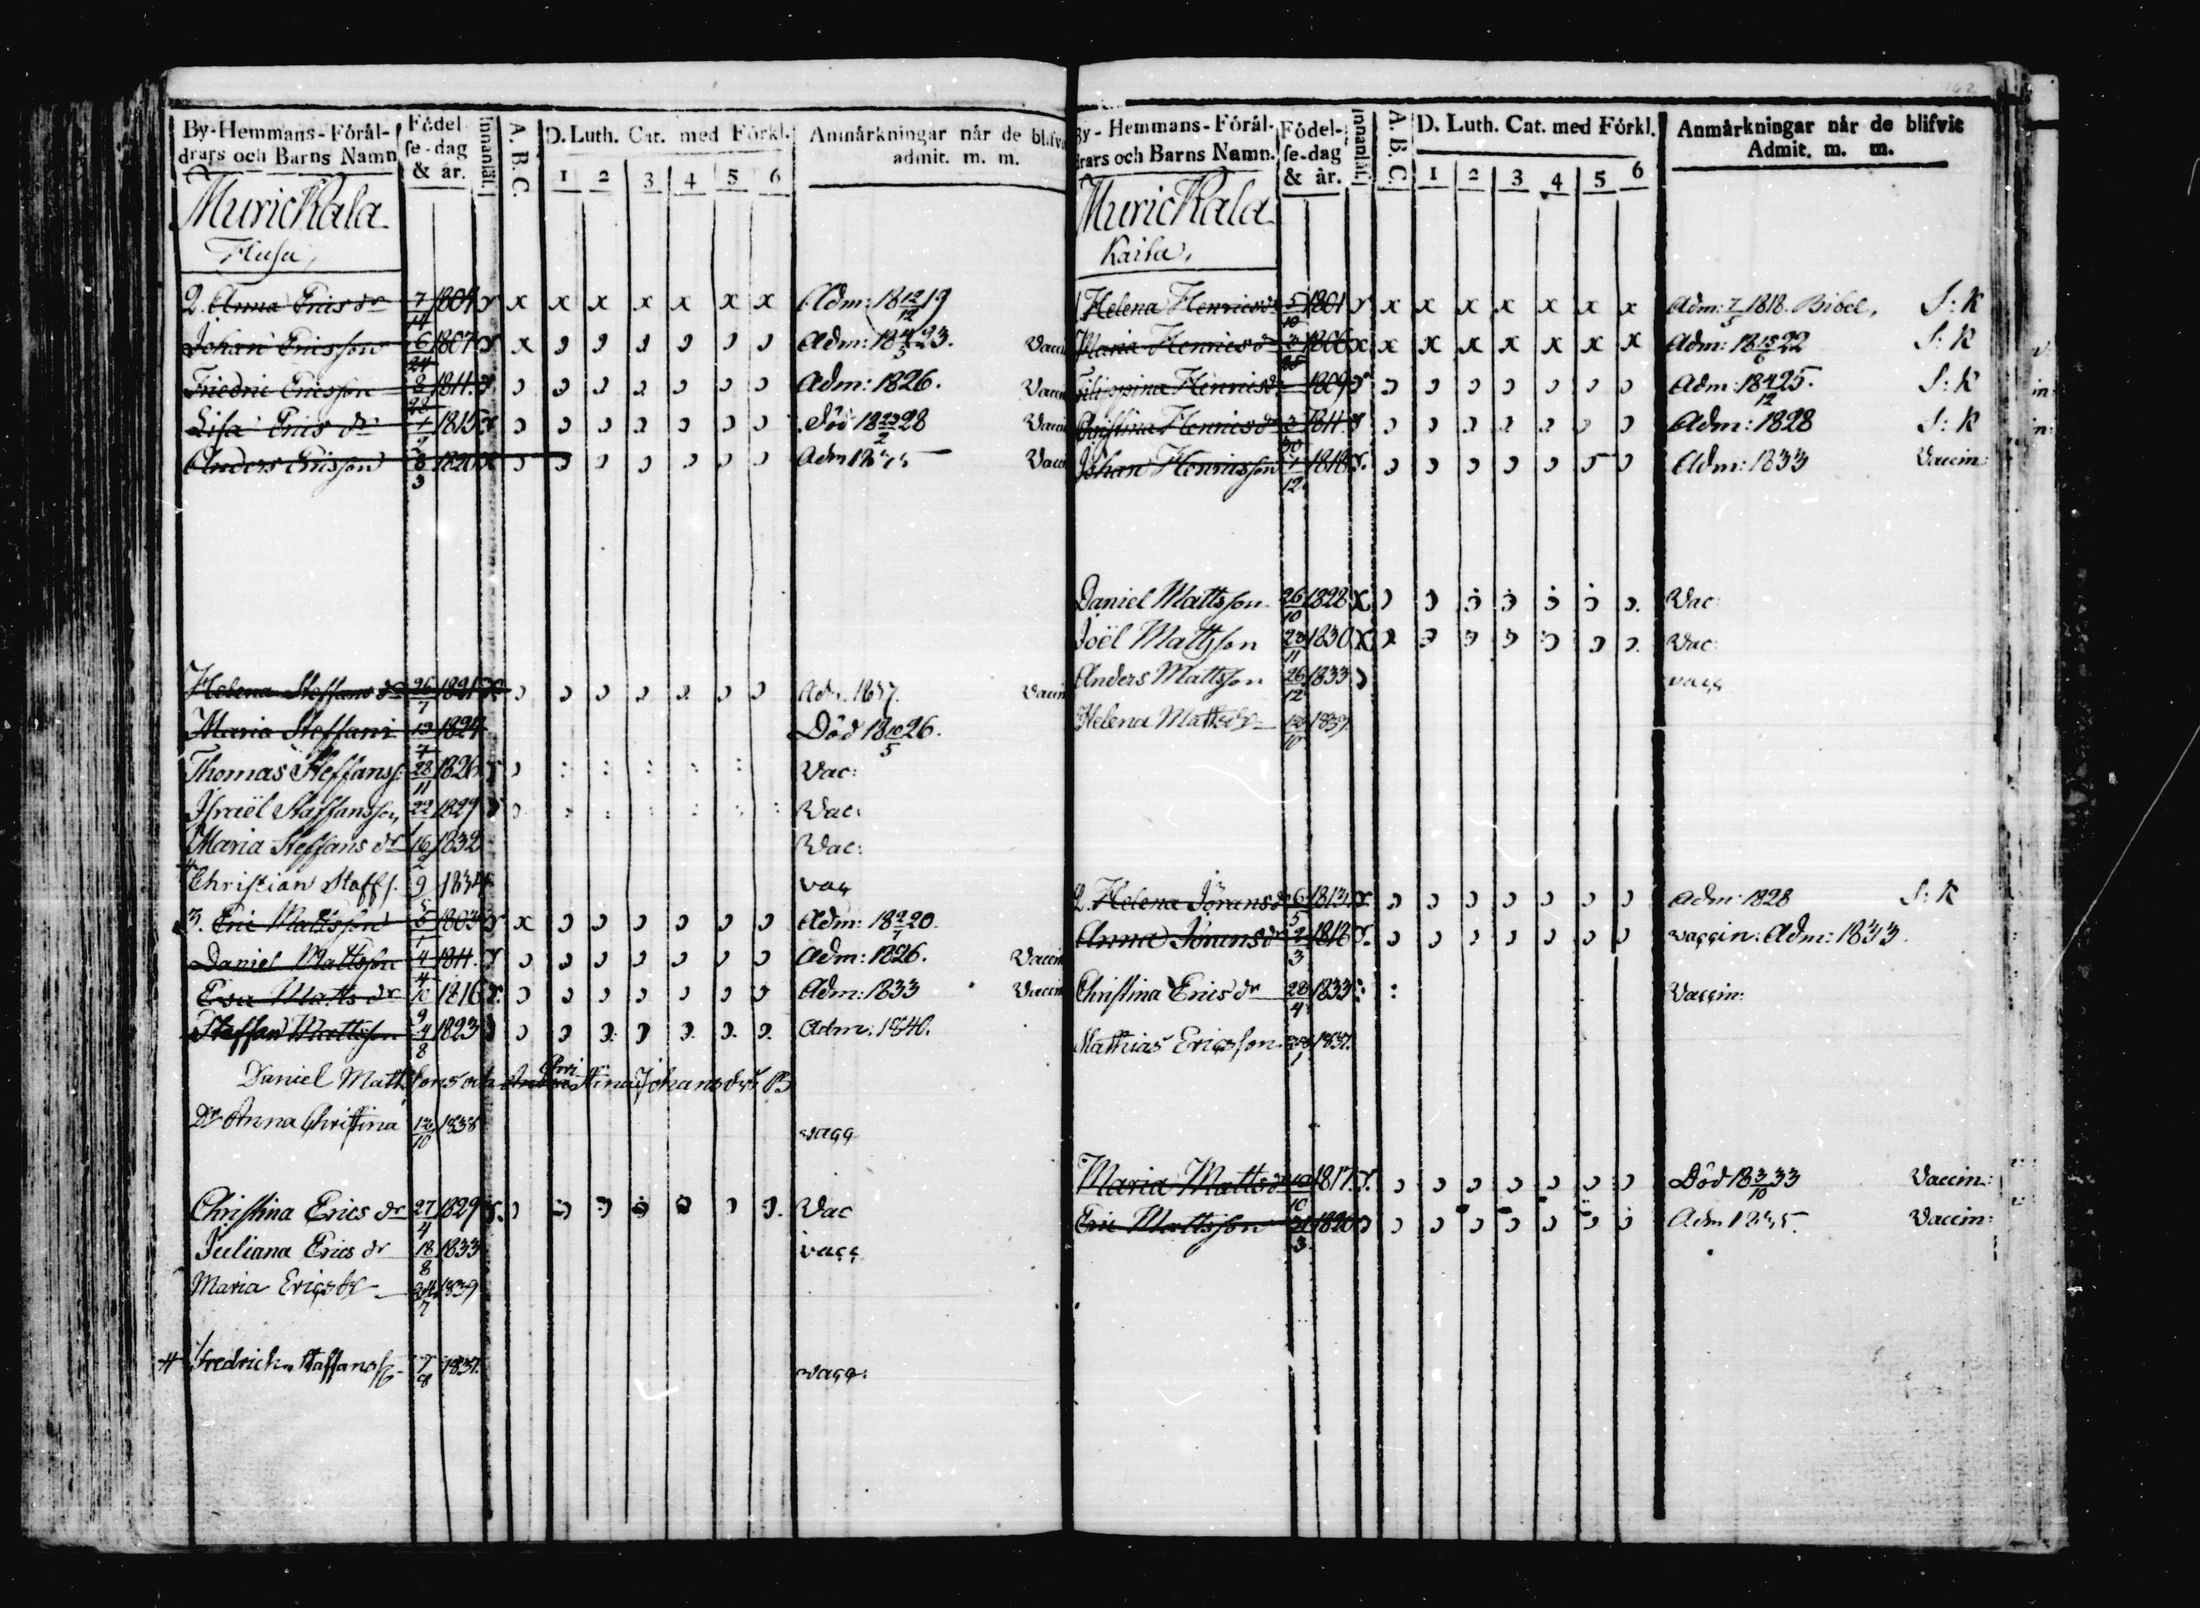 By-Hemmans-Förål-
drars och Barns Namn
Födel-
se-dag
& år.
Innanläs.
A. B. C.
D. Luth. Cat. med Förkl.
1 2 3 4 5 6
Anmärkningar når de blifvi
admit. m. m.
Murickala
2. Anna Erics dr 7 1804 x x x x x x x Adm: 18 12/12 19
Johan Ericsson 1807 x Adm: 18 23. Vaccin
Friedric Ericsson 1811. Adm: 1826. Vaccin
Lisa Erics dr 1815 Död 18 23/2 28 Vaccin
Anders Ericsson 8/3 1820 Vaccin
Helena Steffans dr 26/7 1821 Adm. 1837. Vaccin
Maria Steffans 1824 Död 18 10/5 26.
Thomas Steffanss: 28/11 1826 Vac:
Israël Staffansson 22/1 1829 Vac:
Maria Steffans dr 16/2 1832 Vac:
# Christian Staffs. 9/5 1834 vac
3. Eric Mattsson 1803 x Adm: 18 20.
Daniel Mattsson 4/4 1811. Adm: 1826. Vaccin
Eva Matts dr 10/9 1816 Adm: 1833 Vaccin
Staffan Mattsson 4/8 1823 Adm. 1840.
Daniel Mattssons och Christina Johansdrs B
Dr Anna Christina 12/10 1838 vacc
Christina Erics dr 27/4 1829 Vac
Juliana Erics dr 18/8 1833 vacc
Maria Ericsdr 24/7 1839
# Fredrich Staffanss. 7/8 1837. vacc:
By-Hemmans-Förål-
drars och Barns Namn.
Födel-
se-dag
& år.
Innanläs.
A. B. C.
D. Luth. Cat. med Förkl.
1 2 3 4 5 6
Anmärkningar når de blifvit
Admit. m. m.
Murickala
Kaila,
1 Helena Henricsdr 5/10 1801 x x x x x x x Adm: 7/5 1818. Bibel, S: K
Maria Henricsdr 1806 x x x x x x x x Adm: 18 15/6 22 S: K
Filippina Henricsdr 1809 Adm: 18 4/12 25. S: K
Christina Henricsdr 1811 Adm: 1828 S: K
Johan Henricsson 1/12 1818 Adm: 1833 Vaccin:
Daniel Mattsson 26/10 1828 x Vac:
Joël Mattsson 23/11 1830 x Vac:
Anders Mattsson 26/12 1833 vacc
Helena Mattsdr 1839.
2. Helena Jöransdr 6/5 1813 Adm: 1828 S: K
Anna Jöransdr 2/3 1818 vaccin: Adm: 1833.
Christina Erics dr 28/4 1833 Vaccin:
Mathias Ericsson 28/1 1837.
Maria Mattsdr 10/10 1817 Död 18 3/10 33 Vaccin:
Eric Mattsson 1820 Vaccin: